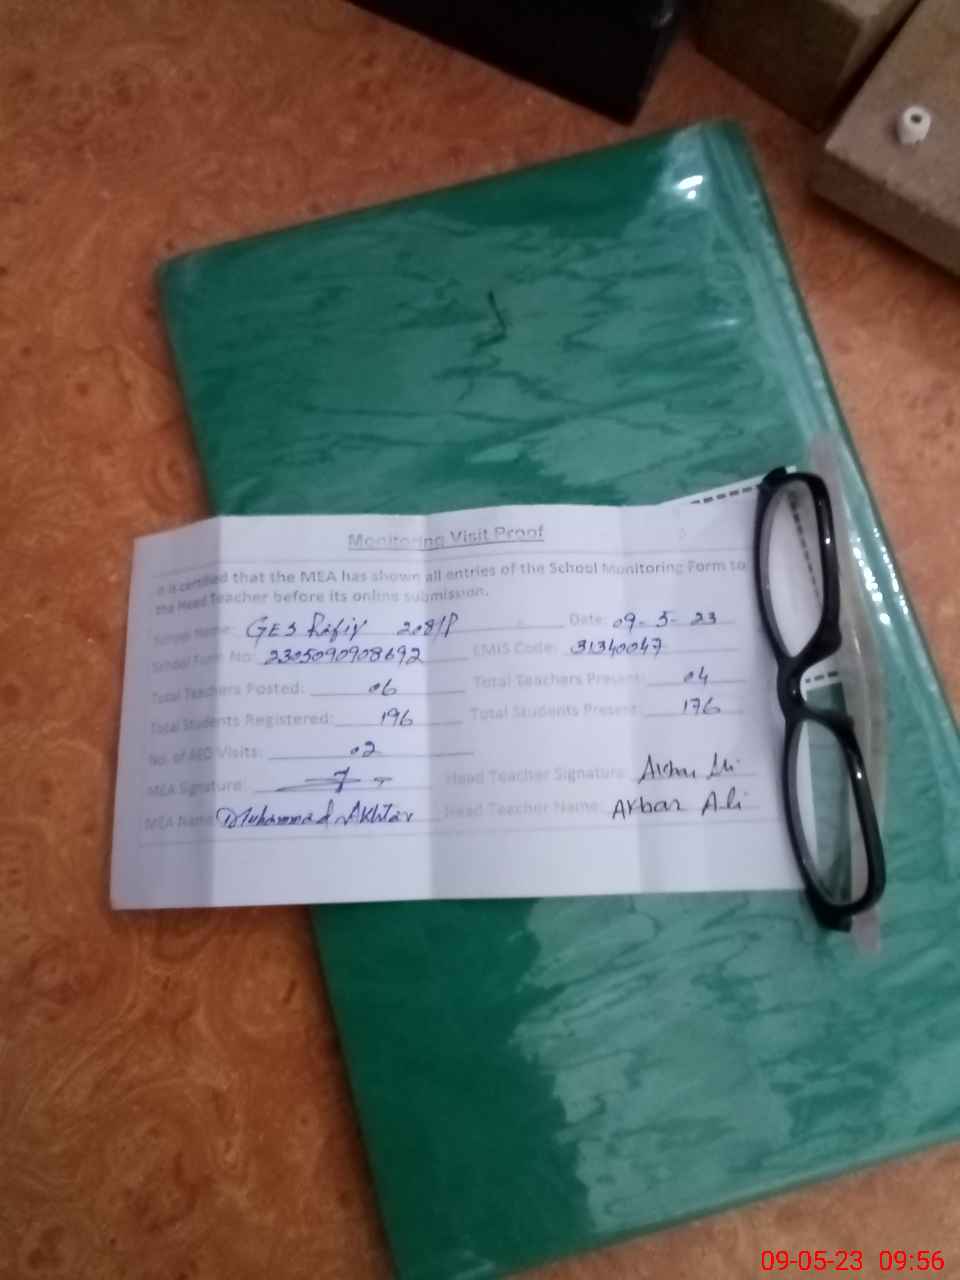 Monitoring Visit Proof
It is certified that the MEA has shown all entries of the School Monitoring Form to
the Head Teacher before its online submission.
School Name: GES 208/P Date: 09-5-23
School Form No: 2305090908692 EMIS Code: 31340047
Total Teachers Posted: 06 Total Teachers Present: 04
Total Students Registered: 196 Total Students Present: 176
No. of AEO Visits: 02
MEA Signature: Head Teacher Signature: Akbar Ali
MEA Name: Muhammad Akhtar Head Teacher Name: Akbar Ali
09-05-23 09:56